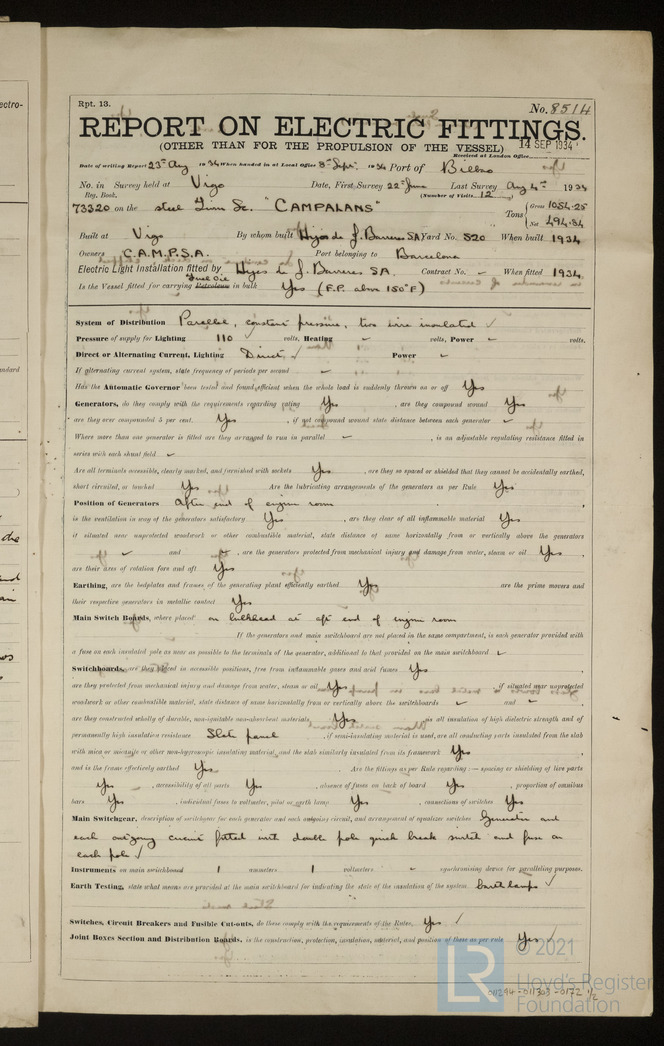 Rpt. 13.
No. 8514
REPORT ON ELECTRIC FITTINGS.
(OTHER THAN FOR THE PROPULSION OF THE VESSEL)
14 SEP 1934
Received at London Office
Date of writing Report 23rd Aug 1934 When handed in at Local Office 8th Sept. 1934 Port of Bilbao
No. in Survey held at Vigo Date, First Survey 22nd June Last Survey Aug 1934
Reg. Book. (Number of Visits 12)
73320 on the steel "CAMPALANS" Tons Gross 1054.25 Net 494.34
Built at Vigo By whom built Hijos de J. Barreras SA Yard No. 520 When built 1934
Owners C.A.M.P.S.A. Port belonging to Barcelona
Electric Light Installation fitted by Hijos de J. Barreras SA. Contract No. - When fitted 1934
Fuel Oil
Is the Vessel fitted for carrying Petroleum in bulk Yes (F.P. above 150°F)
System of Distribution Parallel, constant pressure, two wire insulated ✓
Pressure of supply for Lighting 110 volts, Heating - volts, Power - volts.
Direct or Alternating Current, Lighting Direct ✓ Power -
If alternating current system, state frequency of periods per second -
Has the Automatic Governor been tested and found efficient when the whole load is suddenly thrown on or off Yes
Generators, do they comply with the requirements regarding rating Yes, are they compound wound Yes
are they over compounded 5 per cent. Yes, if not compound wound state distance between each generator -
Where more than one generator is fitted are they arranged to run in parallel -, is an adjustable regulating resistance fitted in
series with each shunt field -
Are all terminals accessible, clearly marked, and furnished with sockets Yes, are they so spaced or shielded that they cannot be accidentally earthed,
short circuited, or touched Yes Are the lubricating arrangements of the generators as per Rule Yes
Position of Generators After end of engine room
is the ventilation in way of the generators satisfactory Yes, are they clear of all inflammable material Yes
if situated near unprotected woodwork or other combustible material, state distance of same horizontally from or vertically above the generators
- and -, are the generators protected from mechanical injury and damage from water, steam or oil Yes,
are their axes of rotation fore and aft Yes
Earthing, are the bedplates and frames of the generating plant efficiently earthed Yes are the prime movers and
their respective generators in metallic contact Yes
Main Switch Boards, where placed on bulkhead at aft end of engine room
If the generators and main switchboard are not placed in the same compartment, is each generator provided with
a fuse on each insulated pole as near as possible to the terminals of the generator, additional to that provided on the main switchboard -
Switchboards, are they placed in accessible positions, free from inflammable gases and acid fumes Yes
are they protected from mechanical injury and damage from water, steam or oil Yes, if situated near unprotected
woodwork or other combustible material, state distance of same horizontally from or vertically above the switchboards - and -,
are they constructed wholly of durable, non-ignitable non-absorbent materials Yes, is all insulation of high dielectric strength and of
permanently high insulation resistance Slate panel, if semi-insulating material is used, are all conducting parts insulated from the slab
with mica or micanite or other non-hygroscopic insulating material, and the slab similarly insulated from its framework Yes,
and is the frame effectively earthed Yes. Are the fittings as per Rule regarding:— spacing or shielding of live parts
Yes, accessibility of all parts Yes, absence of fuses on back of board Yes, proportion of omnibus
bars Yes, individual fuses to voltmeter, pilot or earth lamp Yes, connections of switches Yes
Main Switchgear, description of switchgear for each generator and each outgoing circuit, and arrangement of equalizer switches Generator and
each outgoing circuit fitted with double pole quick break switch and fuse on
each pole ✓
Instruments on main switchboard 1 ammeters 1 voltmeters - synchronising device for paralleling purposes.
Earth Testing, state what means are provided at the main switchboard for indicating the state of the insulation of the system Earth lamps ✓
Switches, Circuit Breakers and Fusible Cut-outs, do these comply with the requirements of the Rules, Yes ✓
Joint Boxes Section and Distribution Boards, is the construction, protection, insulation, material, and position of these as per rule Yes ✓
© 2021
LR
Lloyd's Register
Foundation
011294-011303-0172 1/2